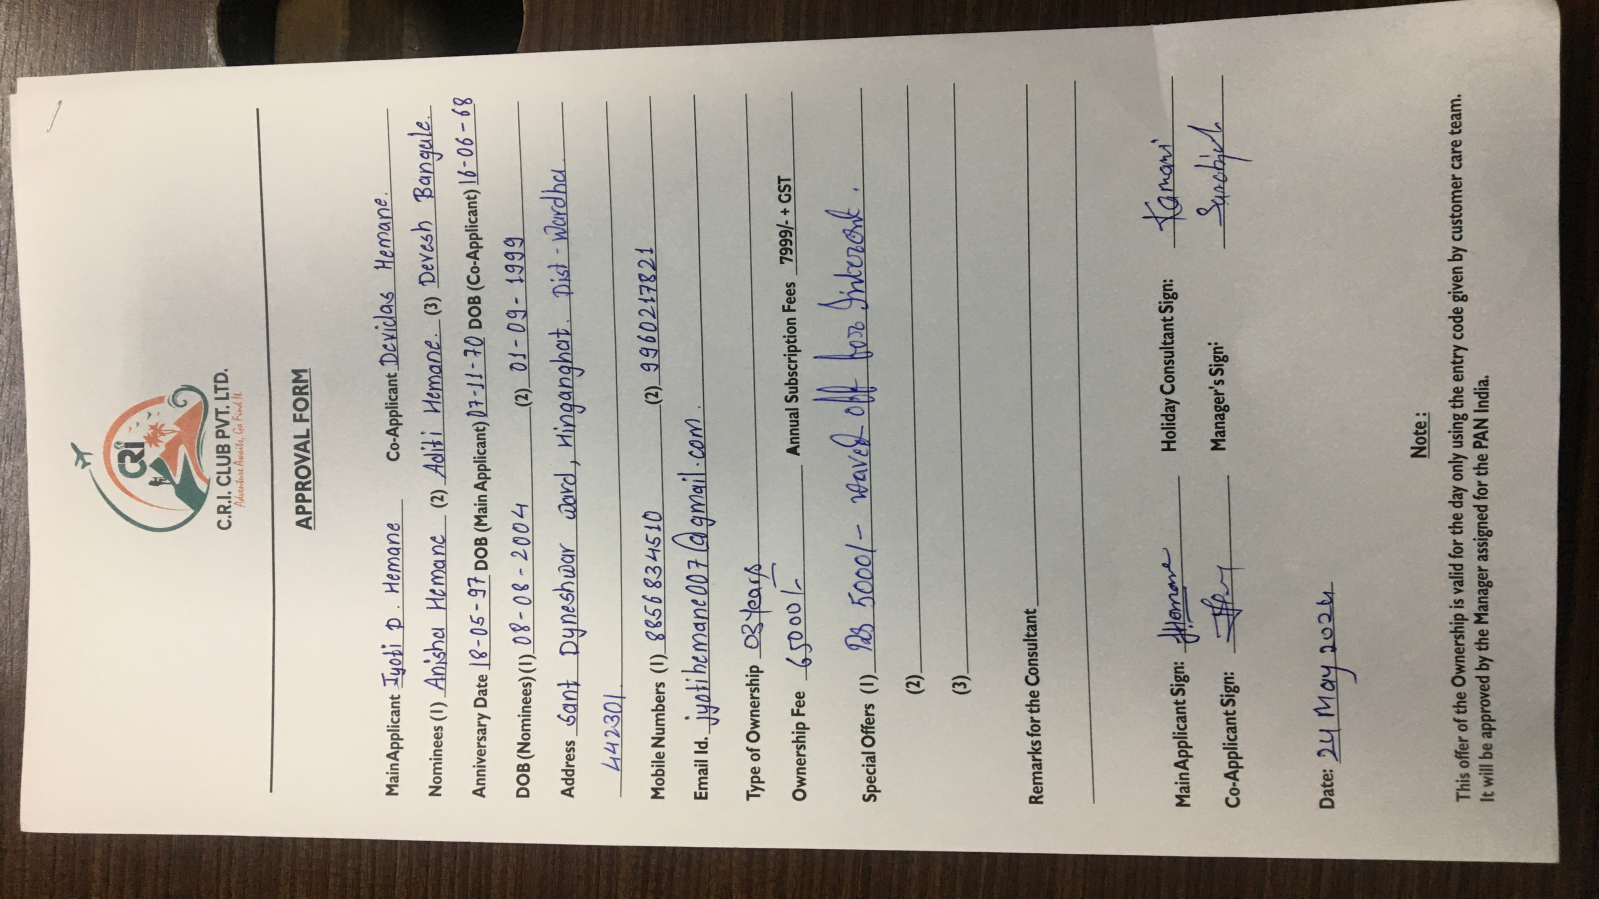 CRI
C.R.I. CLUB PVT. LTD.
Adventure Awaits, Go Find It
APPROVAL FORM
Main Applicant Jyoti D. Hemane Co-Applicant Devidas Hemane.
Nominees (1) Anisha Hemane (2) Aditi Hemane. (3) Devesh Bangale.
Anniversary Date 18-05-97 DOB (Main Applicant) 07-11-70 DOB (Co-Applicant) 16-06-68
DOB (Nominees) (1) 08-08-2004 (2) 01-09-1999
Address Sant Dyneshwar ward, Hinganghat. Dist-Wardha
442301.
Mobile Numbers (1) 8856834510 (2) 9960217821
Email Id. jyotihemane007@gmail.com.
Type of Ownership 03 Years
Ownership Fee 65000/- Annual Subscription Fees 7999/- + GST
Special Offers (1) Rs 5000/- waved off for Interest.
(2)
(3)
Remarks for the Consultant
Main Applicant Sign: JHemane Holiday Consultant Sign: Kamani
Co-Applicant Sign: Manager's Sign:
Date: 24 May 2024
Note :
This offer of the Ownership is valid for the day only using the entry code given by customer care team.
It will be approved by the Manager assigned for the PAN India.